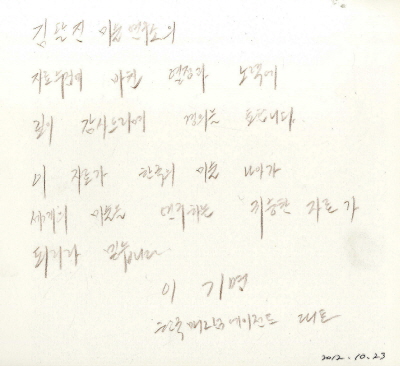 김달진 미술연구소의
자료수집에 바친 열정과 노력에
깊이 감사드리며 경의를 표합니다.
이 자료가 한국의 미술 나아가
세계의 미술을 연구하는 귀중한 자료가
되리라 믿습니다
이 기명
한국매그넘에이전트 대표
2012.10.23